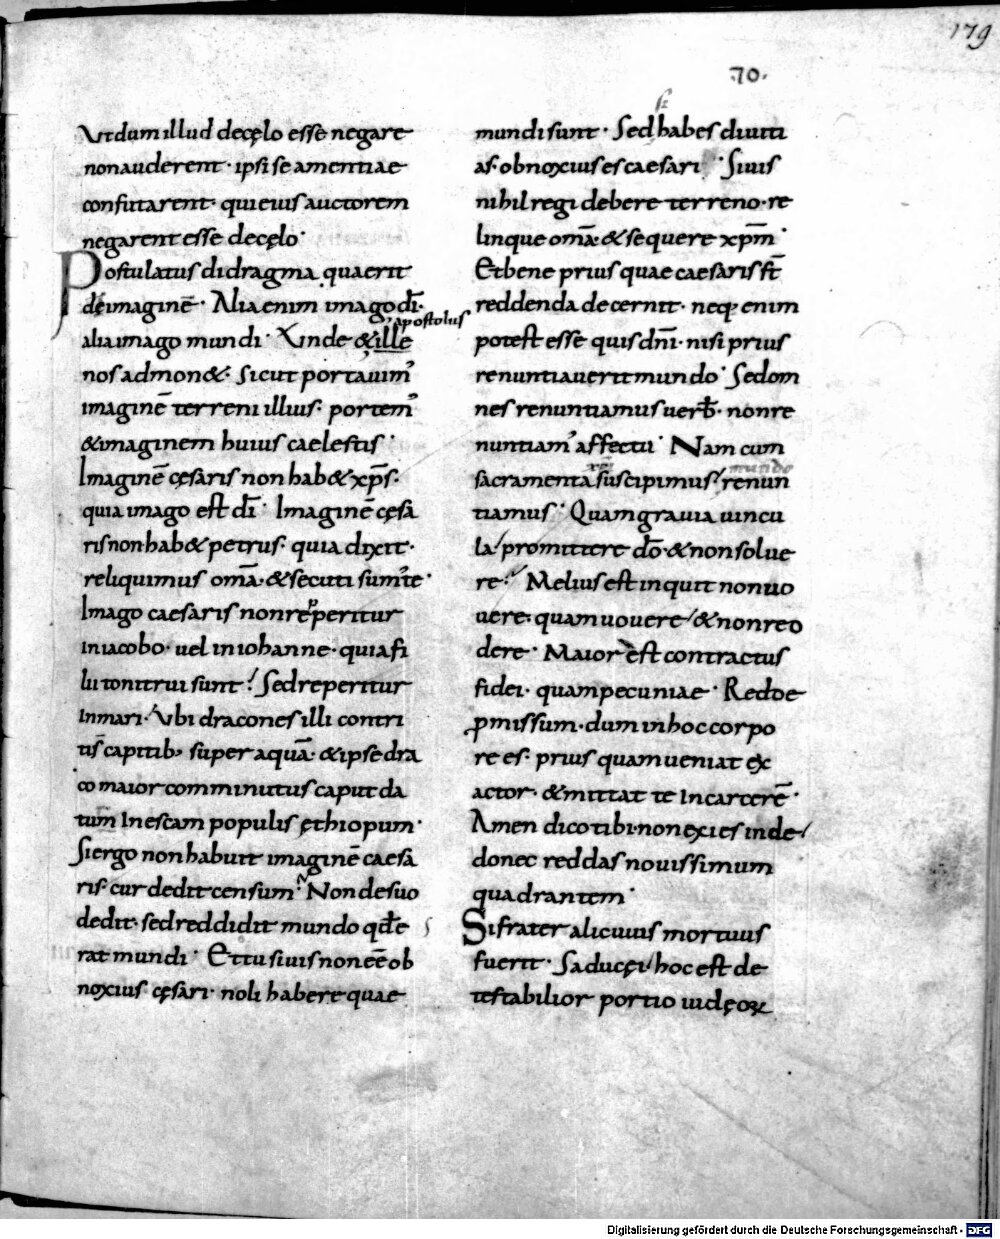 179
.70.
Ut dum illud de cęlo esse negare
non auderent · ipsi se amentiae
confutarent · qui eius auctorem
negarent esse de cęlo ·
Postulatus didragma quaerit
de imaginē · Alia enim imago dī ·
apostolus
alia imago mundi · Unde & ille
nos admon& · Sicut portauim᾽
imaginē terreni illius · portem᾽
& imaginem huius caelestis ·
Imaginē cęsaris non hab& xp̄s ·
quia imago est dī · Imaginē cęsa
ris non hab& petrus · quia dixit ·
reliquimus om̄a · & secuti sum᾽ te ·
Imago caesaris non reperitur
in iacobo · uel in iohanne · quia fi
lii tonitrui sunt / Sed reperitur
in mari · Ubi dracones illi contri
tis capitib; super aquā · & ipse dra
co maior comminutus caput da
tum In escam populis ęthiopum ·
Si ergo non habuit imaginē caesa
ris · cur dedit censum · Non de suo
dedit · sed reddidit mundo qđ e
rat mundi · Et tu si uis non eē ob
noxius cęsari · noli habere quae
si
mundi sunt · Sed habes diuiti
as · obnoxius es caesari · Si uis
nihil regi debere terreno · re
linque om̄a · & sequere xp̄m ·
Et bene prius quae caesaris s̄t
reddenda decernit · neq; enim
potest esse quis dn̄i · nisi prius
renuntiauerit mundo · Sed om
nes renuntiamus uerƀ · non re
nuntiam᾽ affectu · Nam cum
xp̄i mundo
sacramenta suscipimus / renun
tiamus · Quam grauia uincu
la / promittere dō · & non solue
re · / Melius est inquit non uo
uere · quam uouere / & non red
dere · Maior est contractus
fidei · quam pecuniae · Redde
ꝓmissum · dum in hoc corpo
re es · prius quam ueniat ex
actor · & mittat te In carcerē ·
Amen dico tibi · non exies inde /
donec reddas nouissimum
quadrantem ·
Si frater alicuius mortuus
fuerit · Saducęi / hoc est de
testabilior portio iudęoꝝ
Digitalisierung gefördert durch die Deutsche Forschungsgemeinschaft - DFG